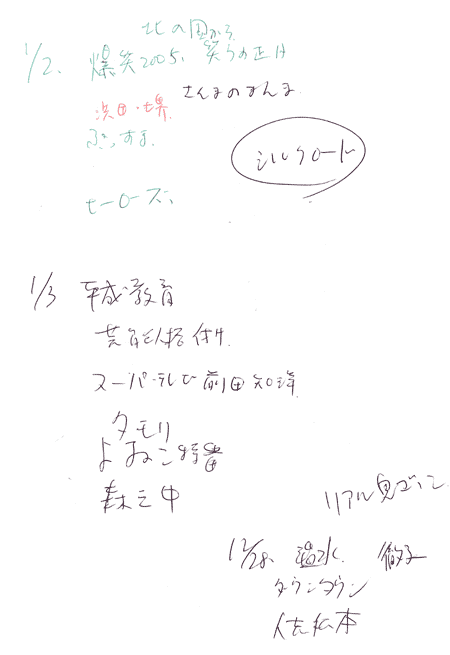 北の国から
1/2、爆笑2005、笑う正月
さんまのまんま
浜田・堺
ぷっすま
シルクロード
ヒーローズ、
1/3 平成教育
芸能人格付け
スーパーテレビ前田知洋
タモリ
よゐこ特番
森之中
リアル鬼ごっこ
12/28、温水、徹子
ダウンタウン
松本